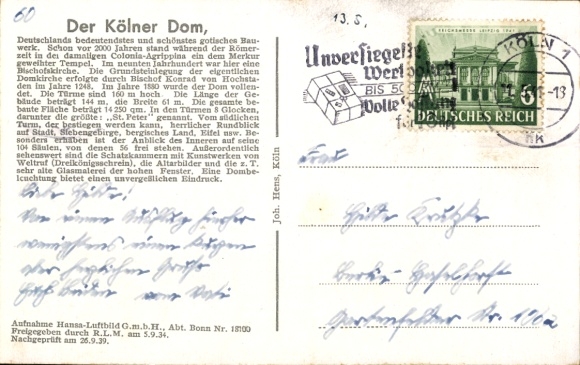 60
13. 5.
Der Kölner Dom,
Deutschlands bedeutendstes und schönstes gotisches Bau-
werk. Schon vor 2000 Jahren stand während der Römer-
zeit in der damaligen Colonia-Agrippina ein dem Merkur
geweihter Tempel. Im neunten Jahrhundert war hier eine
Bischofskirche. Die Grundsteinlegung der eigentlichen
Domkirche erfolgte durch Bischof Konrad von Hochsta-
den im Jahre 1248. Im Jahre 1880 wurde der Dom vollen-
det. Die Türme sind 160 m hoch. Die Länge der Ge-
bäude beträgt 144 m, die Breite 61 m. Die gesamte be-
baute Fläche beträgt 14 250 qm. In den Türmen 8 Glocken,
darunter die größte: „St. Peter" genannt. Vom südlichen
Turm, der bestiegen werden kann, herrlicher Rundblick
auf Stadt, Siebengebirge, bergisches Land, Eifel usw. Be-
sonders erhaben ist der Anblick des Inneren auf seine
104 Säulen, von denen 56 frei stehen. Außerordentlich
sehenswert sind die Schatzkammern mit Kunstwerken von
Weltruf (Dreikönigsschrein), die Altarbilder und die z. T.
sehr alte Glasmalerei der hohen Fenster. Eine Dombe-
leuchtung bietet einen unvergeßlichen Eindruck.
Liebe Hilde!
Von einem Ausflug hierher
wenigstens einen kurzen
aber herzlichen Gruß
Euch beiden von Vati
Aufnahme Hansa-Luftbild G.m.b.H., Abt. Bonn Nr. 18100
Freigegeben durch R.L.M. am 5.9.34
Nachgeprüft am 26.9.39.
Joh. Hens, Köln
BIS 50
Wolle
REICHSMESSE LEIPZIG 1941
6
DEUTSCHES REICH
KÖLN 1
Frau
Hilde
Berlin
Gartenfelder Str.